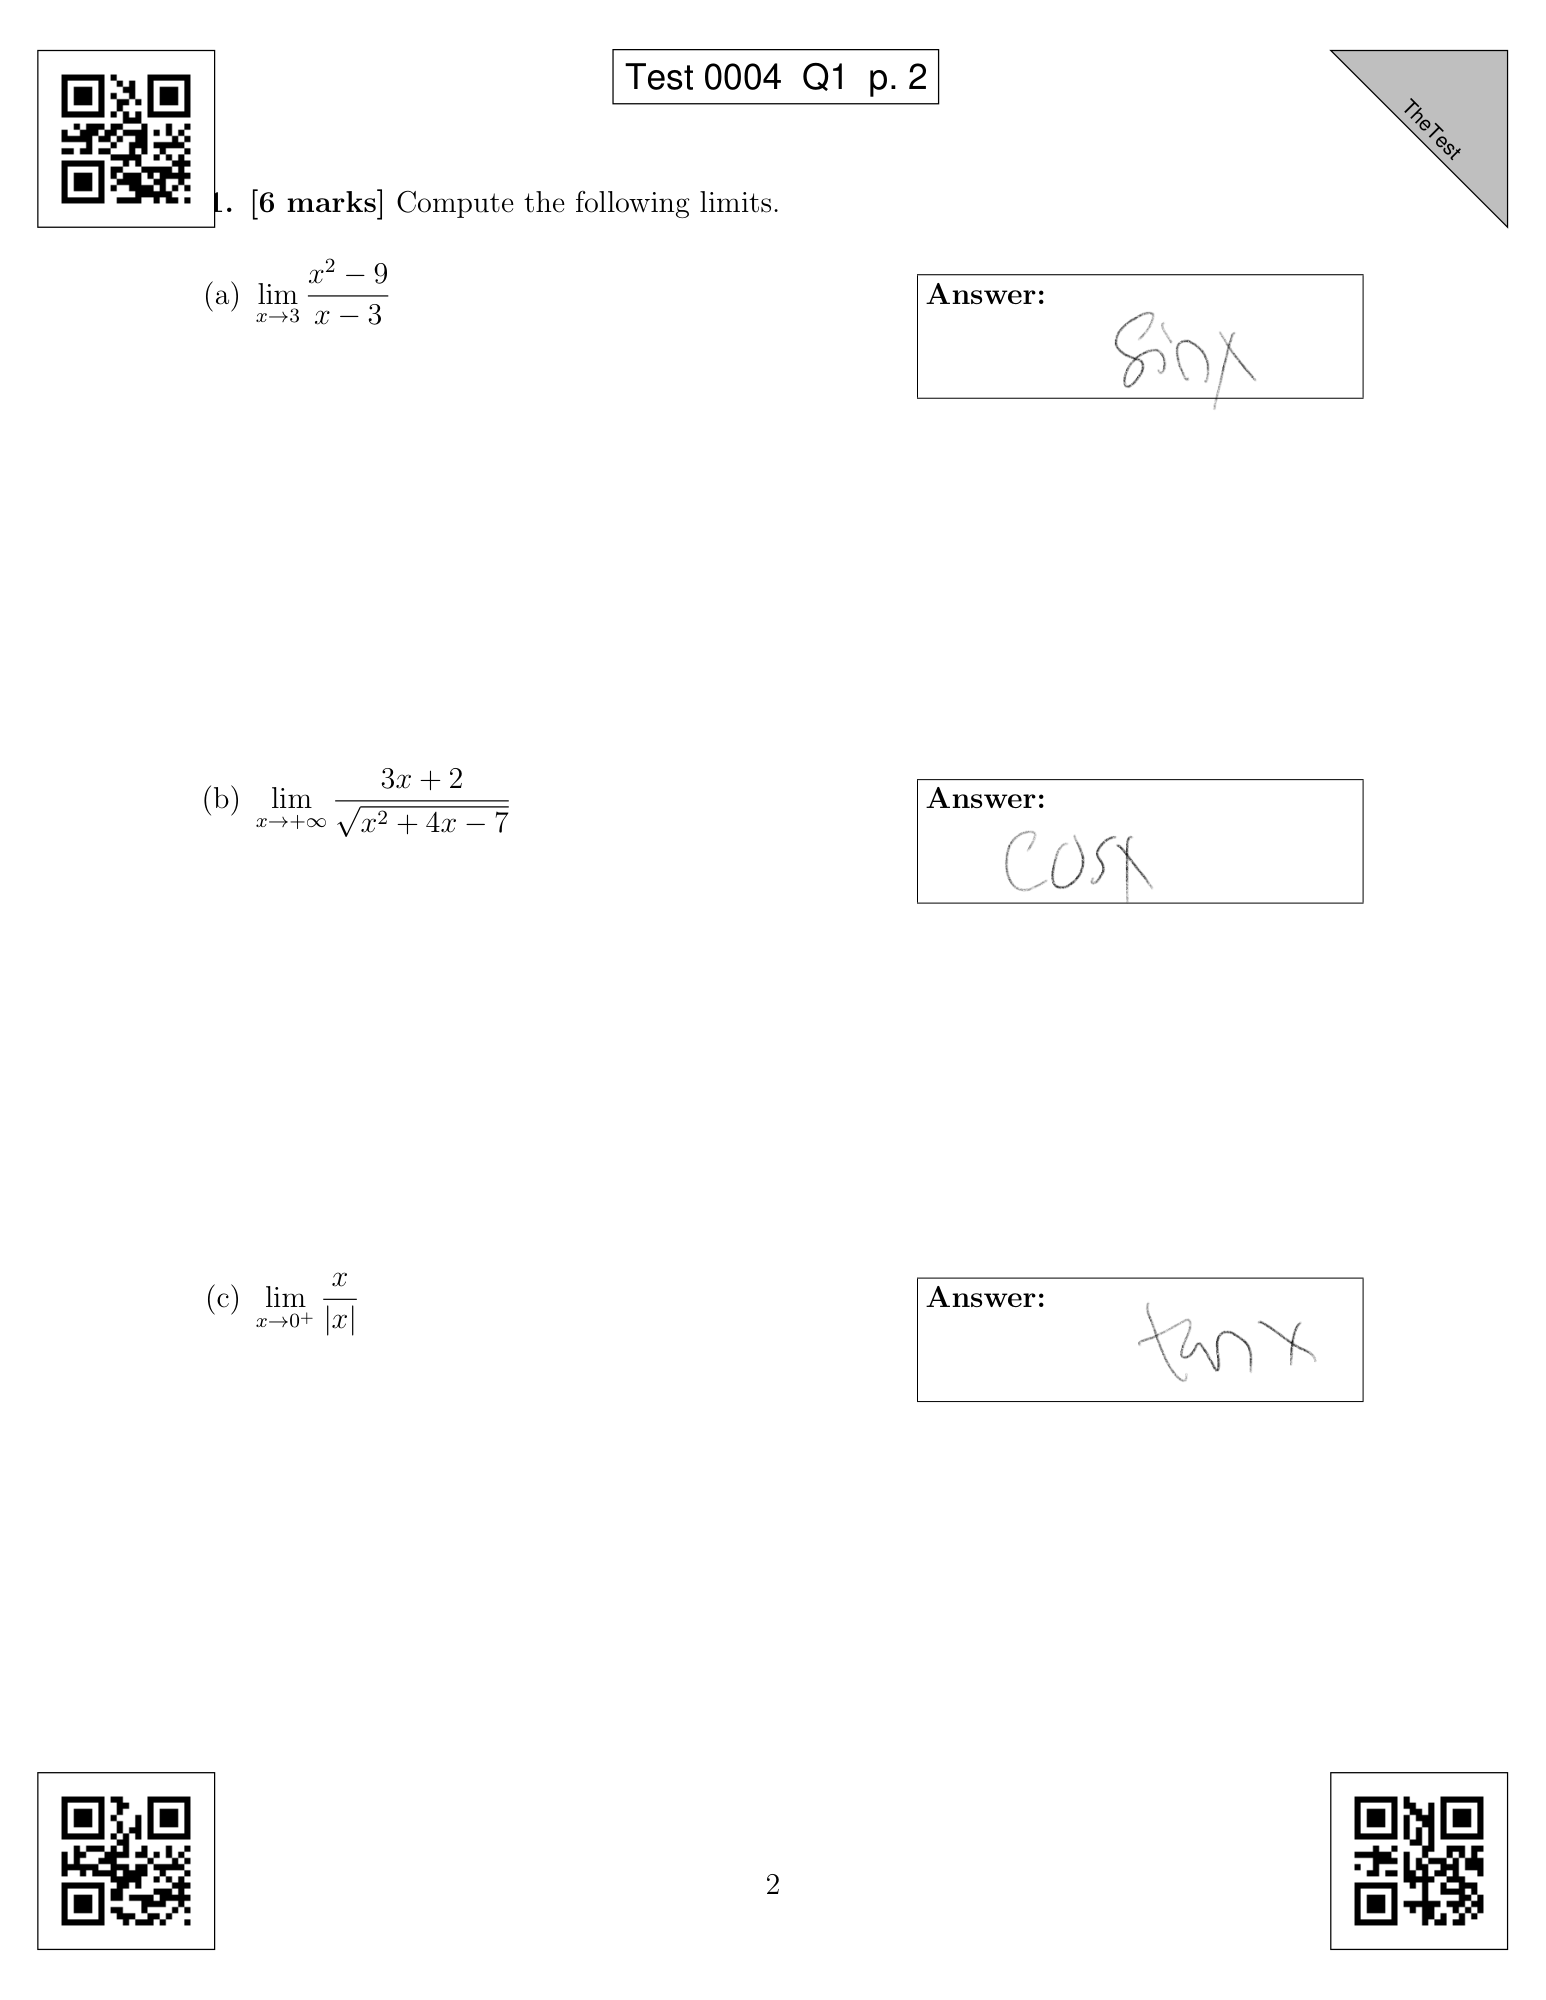 Test 0004 Q1 p. 2
TheTest
1. [6 marks] Compute the following limits.
(a) lim x→3 x² − 9 / x − 3
Answer:
sin x
(b) lim x→+∞ 3x + 2 / √x² + 4x − 7
Answer:
cos x
(c) lim x→0⁺ x / |x|
Answer:
tan x
2